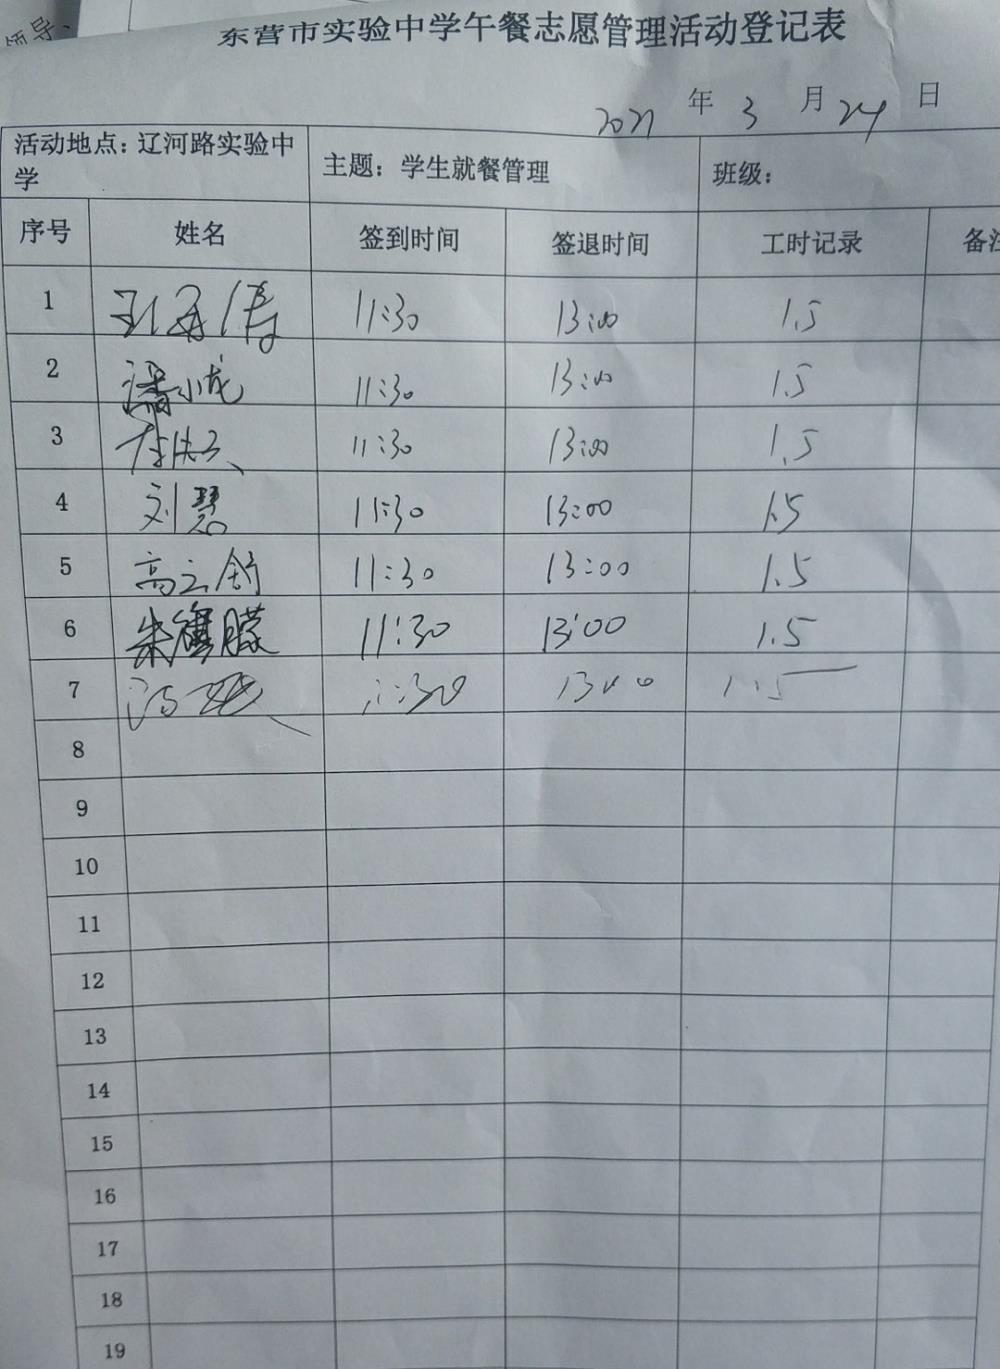 领导、
东营市实验中学午餐志愿管理活动登记表
2021 年 3 月 24 日
活动地点：辽河路实验中学 主题：学生就餐管理 班级：
序号 姓名 签到时间 签退时间 工时记录 备注
1 11:30 13:00 1.5
2 潘小龙 11:30 13:00 1.5
3 11:30 13:00 1.5
4 刘慧 11:30 13:00 1.5
5 高云舒 11:30 13:00 1.5
6 11:30 13:00 1.5
7 11:30 13:00 1.5
8
9
10
11
12
13
14
15
16
17
18
19